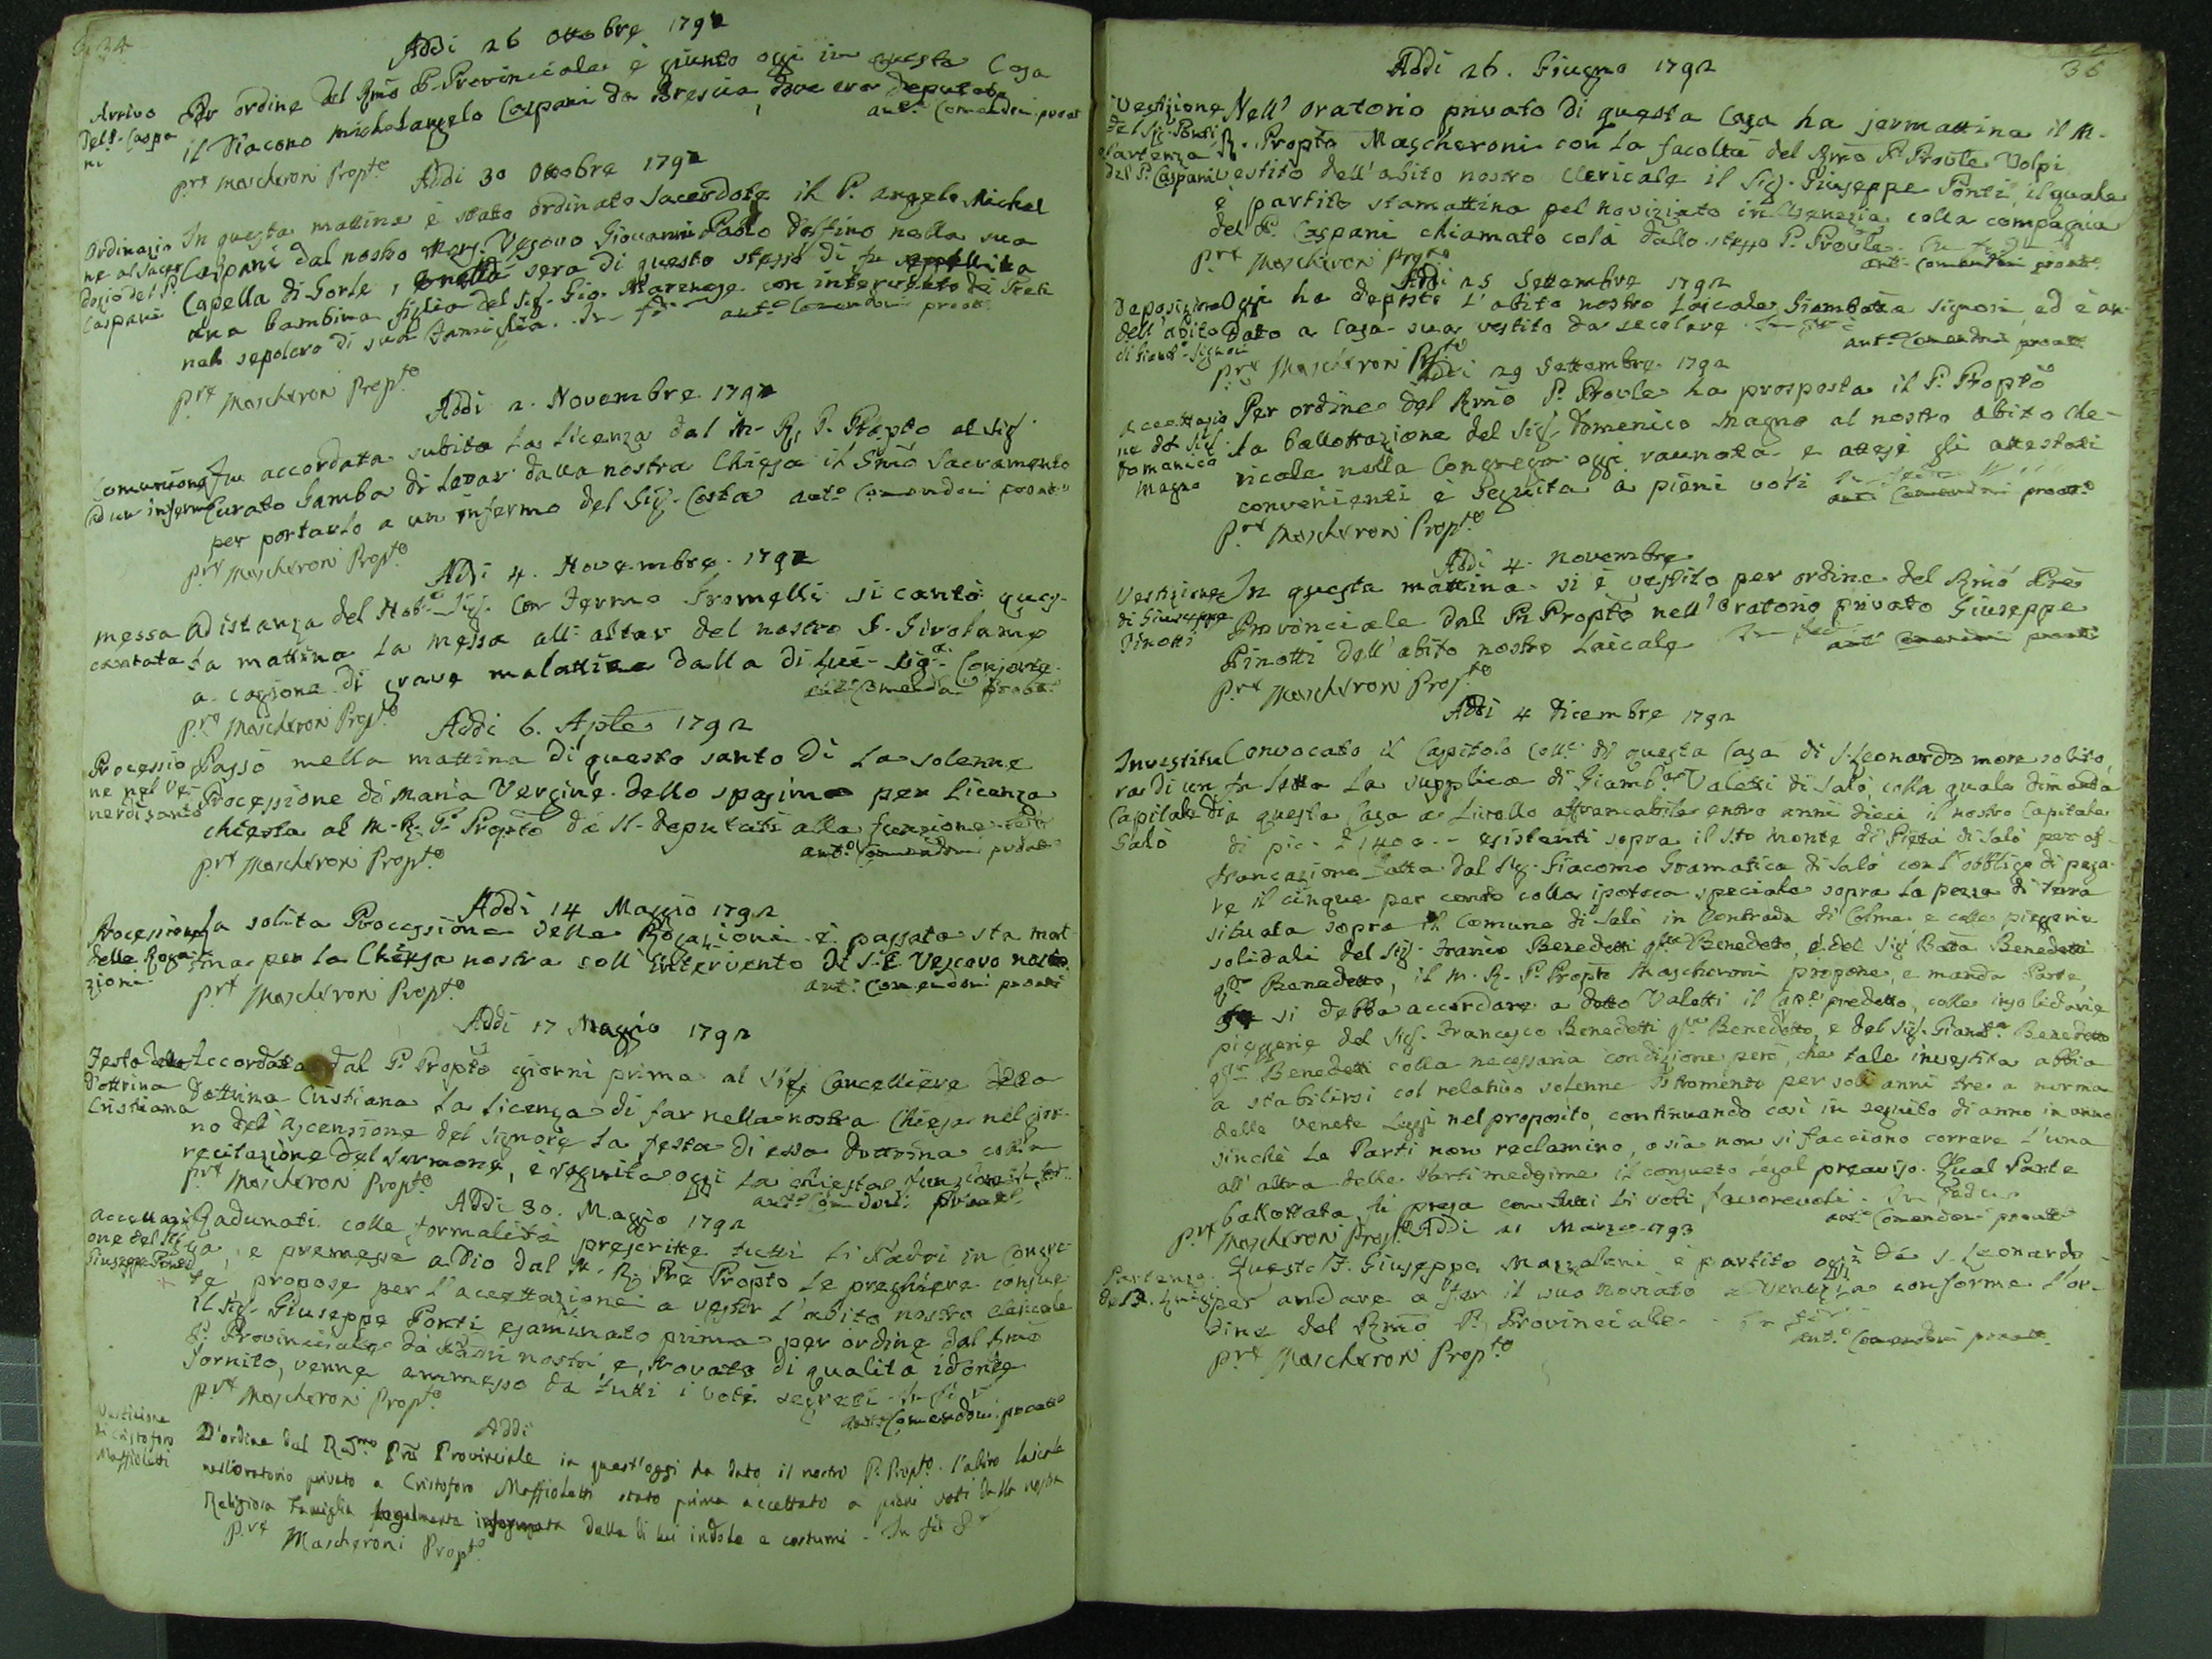 34
Addi 26 Ottobre 1792
Arrivo
del P. Caspa
ni
Per ordine del Rmo P. Provinciale è giunto oggi in questa Casa
il Diacono Michelangelo Caspani da Brescia, dove era deputato
ant.o Comendoni proatt.o
pre Mascheroni Propto
Addi 30 Ottobre 1792
Ordinazio
ne al Sacer
dozio del P.
Caspani
In questa mattina è stato ordinato Sacerdote il P. Angelo Michel
Caspani dal nostro Mons. Vescovo Giovanni Paolo Dolfino nella sua
Capella di Gorle, e nella sera di questo stesso di fu seppellita
una bambina figlia del Sig. Gio. Marenese con intervento de Preti
nel sepolcro di sua Famiglia. In fè
ant.o Comendoni proatt.
pre Mascheroni Propto
Addi 2. Novembre 1792
Comunione
ad un infermo
Fu accordata subito la licenza dal M. R. P. Propto al Sig.
Curato Gamba di levar dalla nostra Chiesa il Smo Sacramento
per portarlo a un infermo del Sig. Costa ant.o Comendoni proatt.o
pre Mascheroni Propto
Addi 4. Novembre. 1792
messa
cantata
Ad istanza del Nob. Sig. Con Fermo Tromelli si cantò ques-
ta mattina la messa all' altar del nostro S. Girolamo
a cagione di grave malattia dalla di lui Sig.a Consorte.
ant.o Comendoni proatt.
pre Mascheroni Propto
Addi 6. Aple 1792
Processio
ne nel Ve-
nerdi santo
Passò nella mattina di questo santo Di la solenne
Processione di Maria Vergine dello spasimo per licenza
chiesta al M. R. P. Propto da SS. deputati alla funzione
ant.o Comendoni proatt.
pre Mascheroni Propto
Addi 14 Maggio 1792
Processione
delle Roga
zioni
La solita Processione delle Rogazioni è passata sta mat-
tina per la Chiesa nostra coll' intervento di S. E. Vescovo nostro
ant.o Comendoni proatt.
pre Mascheroni Propto
Addi 17 Maggio 1792
Festa della
Dottrina
Cristiana
Accordata dal P. Propto giorni prima al Sig. Cancelliere della
Dottrina Cristiana la licenza di far nella nostra Chiesa nel gior-
no dell' Ascensione del Signore la festa di essa dottrina colla
recitazione del Sermone, è seguita oggi la chiesta funzione
ant.o Comendoni proatt.
pre Mascheroni Propto
Addi 30. Maggio 1792
accettazi
one del Sig.
Giuseppe Ponti
Radunati colle formalità prescritte tutti li Padri in Congre-
ga, e premesse a Dio dal M. R. Pre Propto le preghiere consue-
te propose per l' accettazione a vestir l' abito nostro Clericale
il Sig. Giuseppe Ponti esaminato prima per ordine del Rmo
P. Provinciale da Padri nostri e, trovato di qualità idonee
fornito, venne ammesso da tutti i voti segreti. In fè
ant.o Comendoni proatt.
pre Mascheroni Propto
Addi
Vestizione
di Cristoforo
Maffioletti
D'ordine del R.mo Pre Provinciale in quest'oggi ha dato il nostro P. Propto l'abito laicale
nell'oratorio privato a Cristoforo Maffioletti stato prima accettato a pieni voti dalla nostra
Religiosa Famiglia legalmente informata della di lui indole e costumi. In fè
p.re Mascheroni Propto
36
Addi 26. Giugno 1792
Vestizione
del Sig. Ponti
e partenza
del P. Caspani
Nell' oratorio privato di questa Casa ha jermattina il M.
R. Propto Mascheroni con la facoltà del Rmo P. Prōvle Volpi
vestito dell' abito nostro Clericale il Sig. Giuseppe Ponti, il quale
è partito stamattina pel noviziato in Venezia colla compagnia
del P. Caspani chiamato colà dallo stesso P. Provle. In fede
ant. Comendoni proatt.o
pre Mascheroni Propto
Addi 25 Settembre 1792
Deposizione
dell' abito
di Giamb.a Signori
Oggi ha deposto l' abito nostro Laicale Giambatta Signori, ed è an-
dato a Casa sua vestito da secolare
ant.o Comendoni proatt.
pre Mascheroni Propto
Addi 29 Settembre 1792
accettazio
ne del Sig.
Domenico
Magno
Per ordine del Rmo P. Provle ha prosposta il P. Propto
la ballottazione del Sig. Domenico Magno al nostro abito cle-
ricale nella Congrega oggi raunata e attesi gli attestati
convenienti è seguita a pieni voti In fede
ant. Comendoni proatt.o
pre Mascheroni Propto
Addi 4. Novembre
Vestizione
di Giuseppe
Pinotti
In questa mattina si è vestito per ordine del Rmo Pre
Provinciale dal P. Propto nell' oratorio privato Giuseppe
Pinotti dell' abito nostro Laicale In fede
ant. Comendoni proatt.
pre Mascheroni Propto
Addi 4 Dicembre 1792
Investitu
ra di un
Capitale di
Salò
Convocato il Capitolo Coll.e di questa Casa di S. Leonardo more solito,
fu letta la supplica di Giamb.a Valetti di Salò, colla quale dimanda
a questa Casa a Livello affrancabile entro anni dieci il nostro Capitale
di pic. £ 1400 - esistenti sopra il S.to Monte di Pietà di Salò per af-
francazione fatta dal Sig. Giacomo Gramatica di Salò con l'obbligo di paga-
re il cinque per cento colla ipoteca speciale sopra la pezza di terra
situata sopra il Comune di Salò in Contrada di Colma, e colle piegerie
solidali del Sig. Franco Benedetti q.m Benedetto, e del Sig. Batta Benedetti
q.m Benedetto, il M. R. P. Propto Mascheroni propone, e manda Parte,
si debba accordare a detto Valetti il Cap.le predetto, colle insolidarie
pieggerie del Sig. Francesco Benedetti q.m Benedetto, e del Sig. Giamb.a Benedetto
q.m Benedetti colla necessaria condizione però, che tale investita abbia
a stabilirsi col relativo solenne Istromento per soli anni tre a norma
delle Venete Leggi nel proposito, continuando così in seguito di anno in anno
sinchè le Parti non reclamino, o sia non si facciano correre l' una
all' altra delle Parti medesime il consueto legal preaviso. Qual Parte
ballottata, fu presa con tutti li voti favorevoli. In fede
ant.o Comendoni proatt.
pre Mascheroni Propto
Addi 21 Marzo 1793
Partenza
Questo F. Giuseppe Mazzoleni è partito oggi da S. Leonardo
per andare a far il suo Noviato a Venezia conforme l' or-
dine del Rmo P. Provinciale. In fè
ant.o Comendoni proatt.
pre Mascheroni Propto